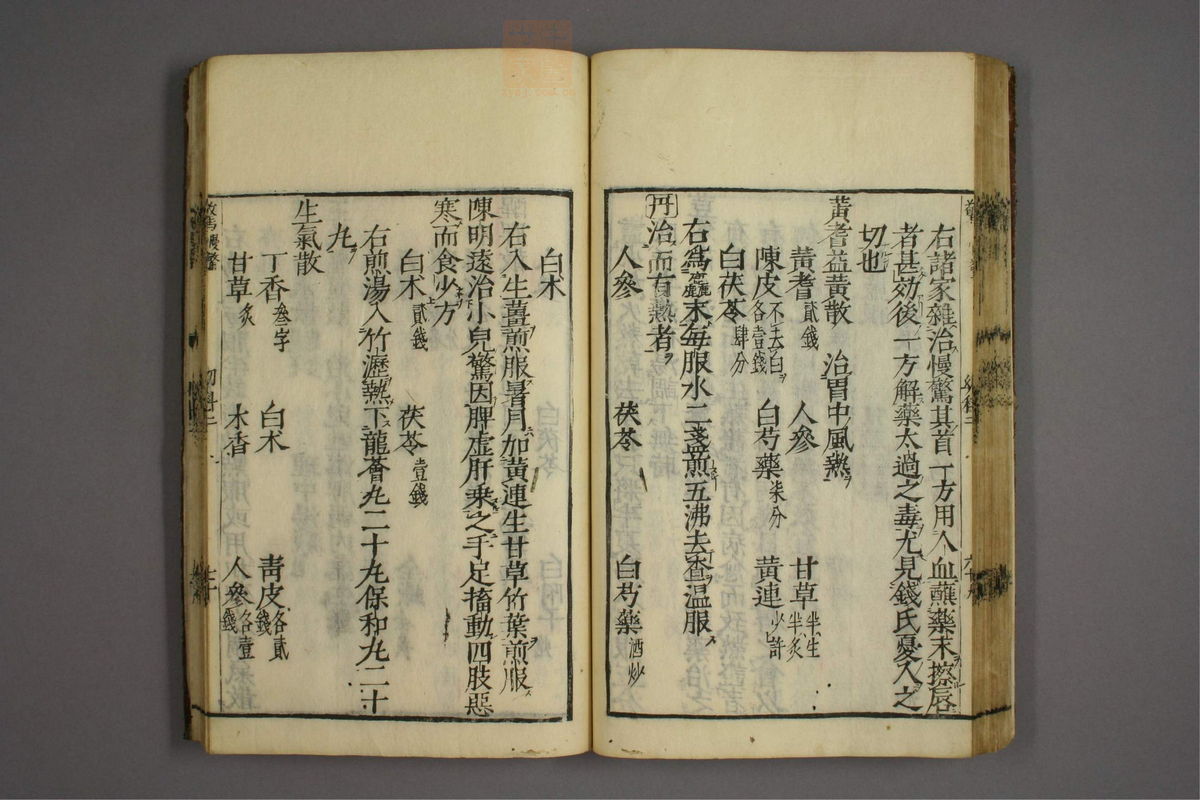 右諸家雜治慢驚其首一方用人血蘸藥末擦唇
者甚効後一方解藥太過之毒尤見錢氏憂人之
切也
黃耆益黃散　治胃中風熱
黃耆貳錢　人參　甘草半生半炙
陳皮不去白各壹錢　白芍藥柒分　黃連少許
白茯苓肆分
右為麄末每服水二盞煎五沸去査温服
丹治而有熱者
人參　茯苓　白芍藥酒炒
白朮
右入生薑煎服暑月加黃連生甘草竹葉煎服
陳明遠治小兒驚因脾虛肝乘之手足搐動四肢惡
寒而食少方
白朮貳錢　茯苓壹錢
右煎湯入竹瀝熱下龍薈丸二十丸保和丸二十
丸
生氣散
丁香叁字　白朮　青皮各貳錢
甘草炙　木香　人參各壹錢
幼科二